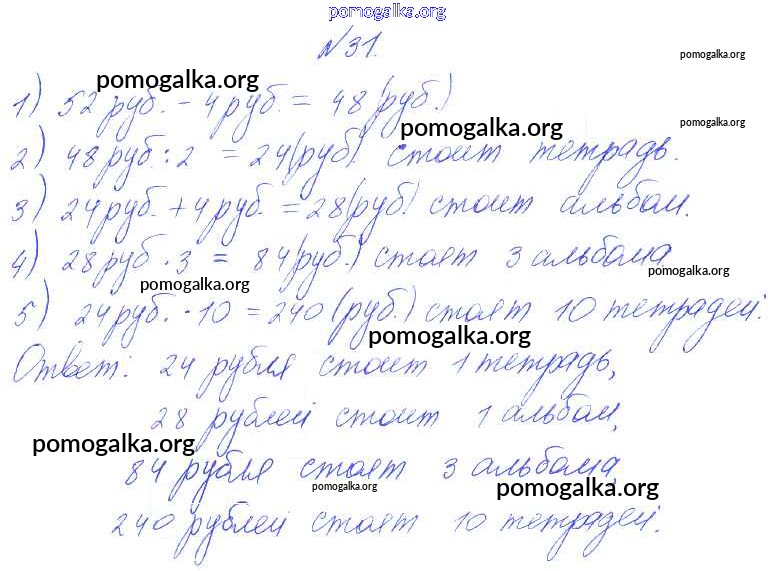 pomogalka.org
№31.
pomogalka.org
pomogalka.org
1) 52 руб. - 4 руб. = 48 (руб.)
pomogalka.org
pomogalka.org
2) 48 руб : 2 = 24 (руб) стоит тетрадь.
3) 24 руб. + 4 руб. = 28 (руб.) стоит альбом.
4) 28 руб · 3 = 84 (руб.) стоят 3 альбома
pomogalka.org
pomogalka.org
5) 24 руб. · 10 = 240 (руб.) стоят 10 тетрадей.
pomogalka.org
Ответ: 24 рубля стоит 1 тетрадь,
28 рублей стоит 1 альбом,
pomogalka.org
84 рубля стоят 3 альбома,
pomogalka.org
pomogalka.org
240 рублей стоят 10 тетрадей.